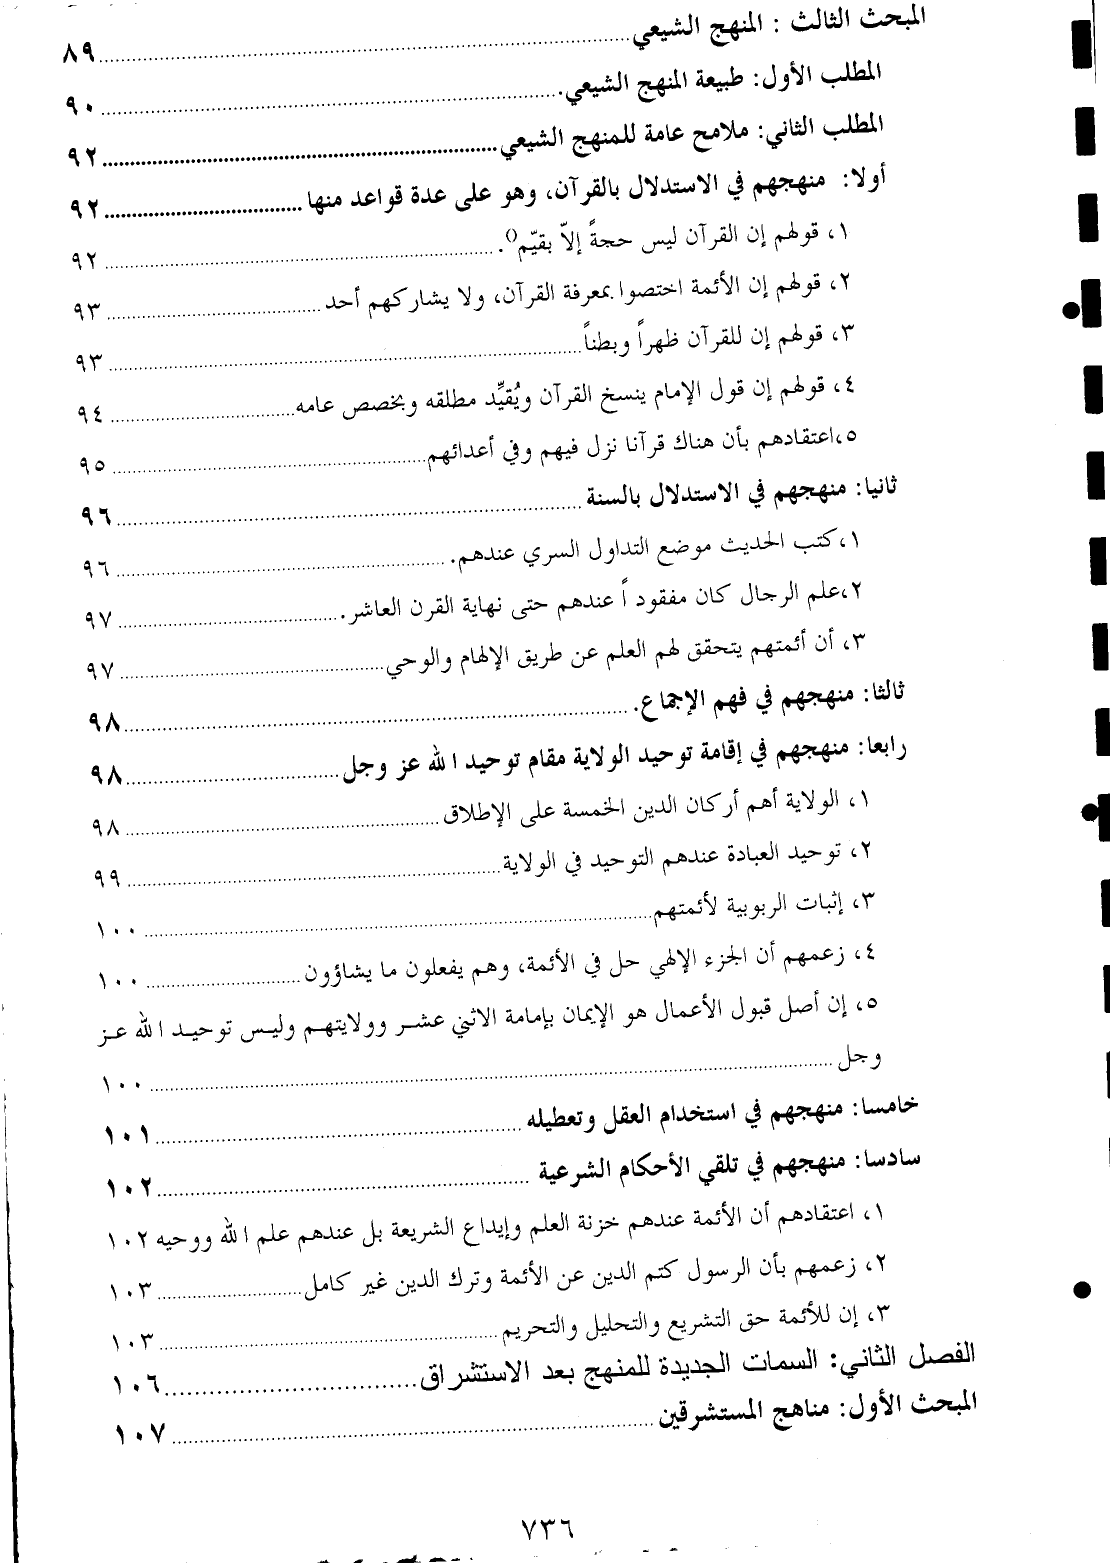 المبحث الثالث : المنهج الشيعي ........ ٨٩
المطلب الأول: طبيعة المنهج الشيعي. ........ ٩٠
المطلب الثاني: ملامح عامة للمنهج الشيعي ........ ٩٢
أولا: منهجهم في الاستدلال بالقرآن، وهو على عدة قواعد منها ........ ٩٢
١، قولهم إن القرآن ليس حجةً إلاّ بقيّم(). ........ ٩٢
٢، قولهم إن الأئمة اختصوا بمعرفة القرآن، ولا يشاركهم أحد ........ ٩٣
٣، قولهم إن للقرآن ظهراً وبطناً ........ ٩٣
٤، قولهم إن قول الإمام ينسخ القرآن ويُقيِّد مطلقه ويخصص عامه ........ ٩٤
٥،اعتقادهم بأن هناك قرآنا نزل فيهم وفي أعدائهم ........ ٩٥
ثانيا: منهجهم في الاستدلال بالسنة ........ ٩٦
١،كتب الحديث موضع التداول السري عندهم. ........ ٩٦
٢،علم الرجال كان مفقود اً عندهم حتى نهاية القرن العاشر. ........ ٩٧
٣، أن أئمتهم يتحقق لهم العلم عن طريق الإلهام والوحي ........ ٩٧
ثالثا: منهجهم في فهم الإجماع. ........ ٩٨
رابعا: منهجهم في إقامة توحيد الولاية مقام توحيد الله عز وجل ........ ٩٨
١، الولاية أهم أركان الدين الخمسة على الإطلاق ........ ٩٨
٢، توحيد العبادة عندهم التوحيد في الولاية ........ ٩٩
٣، إثبات الربوبية لأئمتهم ........ ١٠٠
٤، زعمهم أن الجزء الإلهي حل في الأئمة، وهم يفعلون ما يشاؤون ........ ١٠٠
٥، إن أصل قبول الأعمال هو الإيمان بإمامة الاثني عشر وولايتهم وليس توحيد الله عز
وجل ........ ١٠٠
خامسا: منهجهم في استخدام العقل وتعطيله ........ ١٠١
سادسا: منهجهم في تلقي الأحكام الشرعية ........ ١٠٢
١، اعتقادهم أن الأئمة عندهم خزنة العلم وإيداع الشريعة بل عندهم علم الله ووحيه ١٠٢
٢، زعمهم بأن الرسول كتم الدين عن الأئمة وترك الدين غير كامل ........ ١٠٣
٣، إن للأئمة حق التشريع والتحليل والتحريم ........ ١٠٣
الفصل الثاني: السمات الجديدة للمنهج بعد الاستشراق ........ ١٠٦
المبحث الأول: مناهج المستشرقين ........ ١٠٧
٧٣٦